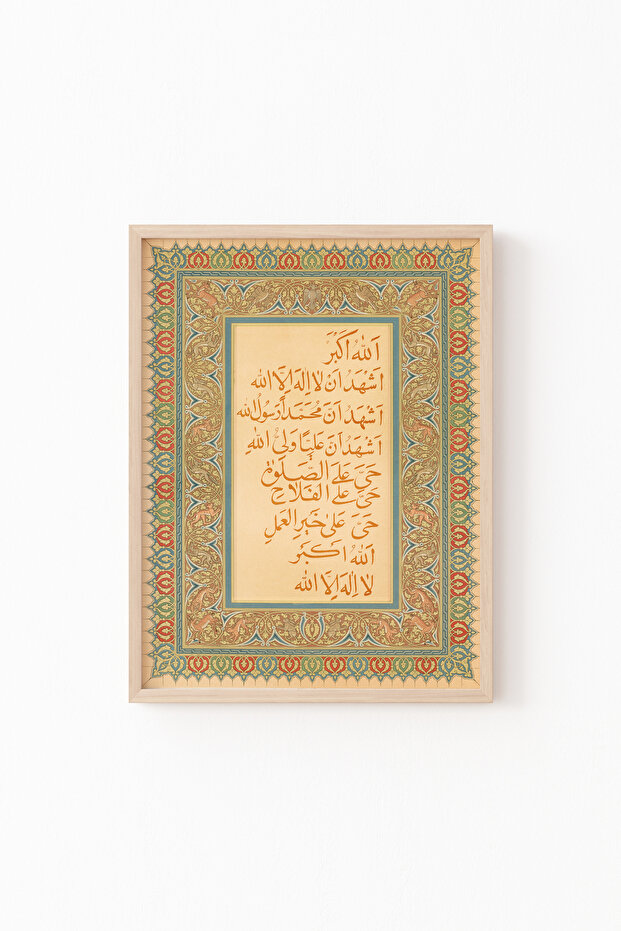 اَللّٰهُ اَكْبَرْ
اَشْهَدُ اَنْ لا اِلٰهَ اِلَّا اللّٰه
اَشْهَدُ اَنَّ مُحَمَّداً رَسُولُ اللّٰه
اَشْهَدُ اَنَّ عَلِيًّا وَلِيُّ اللّٰهِ
حَيَّ عَلَى الصَّلٰوةِ
حَيَّ عَلَى الفَلاَحِ
حَيَّ عَلىٰ خَيْرِ العَمَلِ
اَللّٰهُ اَكْبَر
لا اِلٰهَ اِلَّا اللّٰه